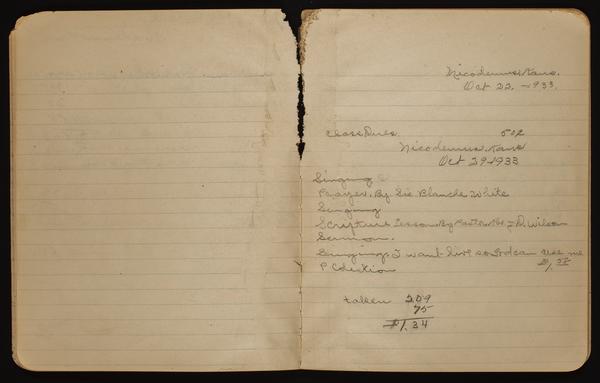 Nicodemus, Kans.
Oct 22, -1933.
Class Dues. 50¢
Nicodemus, Kans
Oct 29-1933
Singing
Prayer. By Sis Blanche White
Singing
Scripture Lesson By Pastor Rev D. Wilson
Sermon.
Singing. I want live so God can use me
P Colection
tallen 2.09
75
$1,34